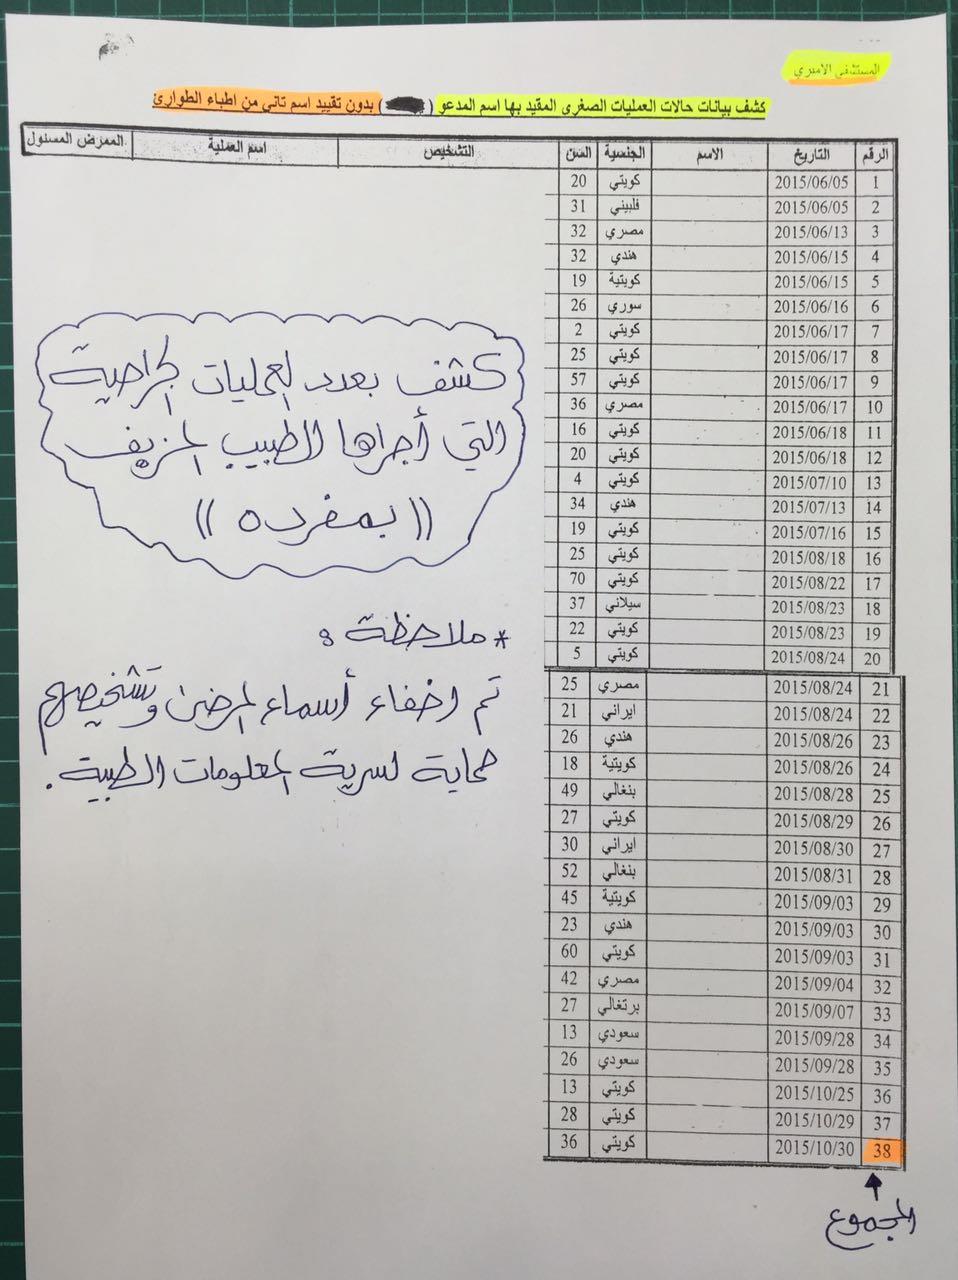 المستشفى الاميري
كشف بيانات حالات العمليات الصغرى المقيد بها اسم المدعو ( ) بدون تقييد اسم تاني من اطباء الطوارئ
الرقم التاريخ الاسم الجنسية السن التشخيص اسم العملية الممرض المسئول
1 2015/06/05 كويتي 20
2 2015/06/05 فلبيني 31
3 2015/06/13 مصري 32
4 2015/06/15 هندي 32
5 2015/06/15 كويتية 19
6 2015/06/16 سوري 26
7 2015/06/17 كويتي 2
8 2015/06/17 كويتي 25
9 2015/06/17 كويتي 57
10 2015/06/17 مصري 36
11 2015/06/18 كويتي 16
12 2015/06/18 كويتي 20
13 2015/07/10 كويتي 4
14 2015/07/13 هندي 34
15 2015/07/16 كويتي 19
16 2015/08/18 كويتي 25
17 2015/08/22 كويتي 70
18 2015/08/23 سيلاني 37
19 2015/08/23 كويتي 22
20 2015/08/24 كويتي 5
21 2015/08/24 مصري 25
22 2015/08/24 ايراني 21
23 2015/08/26 هندي 26
24 2015/08/26 كويتية 18
25 2015/08/28 بنغالي 49
26 2015/08/29 كويتي 27
27 2015/08/30 ايراني 30
28 2015/08/31 بنغالي 52
29 2015/09/03 كويتية 45
30 2015/09/03 هندي 23
31 2015/09/03 كويتي 60
32 2015/09/04 مصري 42
33 2015/09/07 برتغالي 27
34 2015/09/28 سعودي 13
35 2015/09/28 سعودي 26
36 2015/10/25 كويتي 13
37 2015/10/29 كويتي 28
38 2015/10/30 كويتي 36
المجموع
كشف بعدد العمليات الجراحية
التي أجراها الطبيب المزيف
(( بمفرده ))
* ملاحظة :
تم اخفاء أسماء المرضى وتشخيصهم
حماية لسرية المعلومات الطبية .